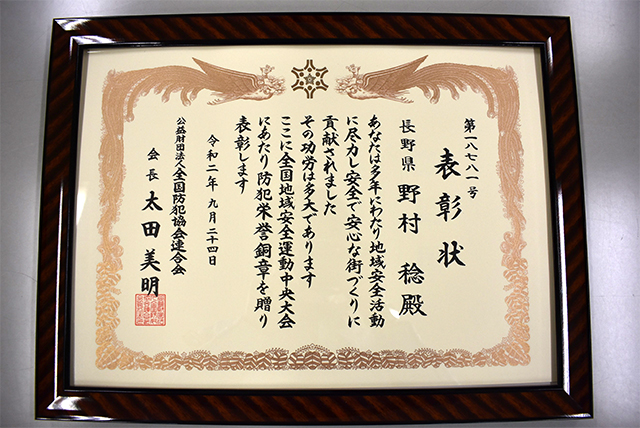 第一八七八一号
表彰状
長野県 野村 稔 殿
あなたは多年にわたり地域安全活動
に尽力し安全で安心な街づくりに
貢献されました
その功労は多大であります
ここに全国地域安全運動中央大会
にあたり防犯栄誉銅章を贈り
表彰します
令和二年九月二十四日
公益財団法人全国防犯協会連合会
会長 太田美明